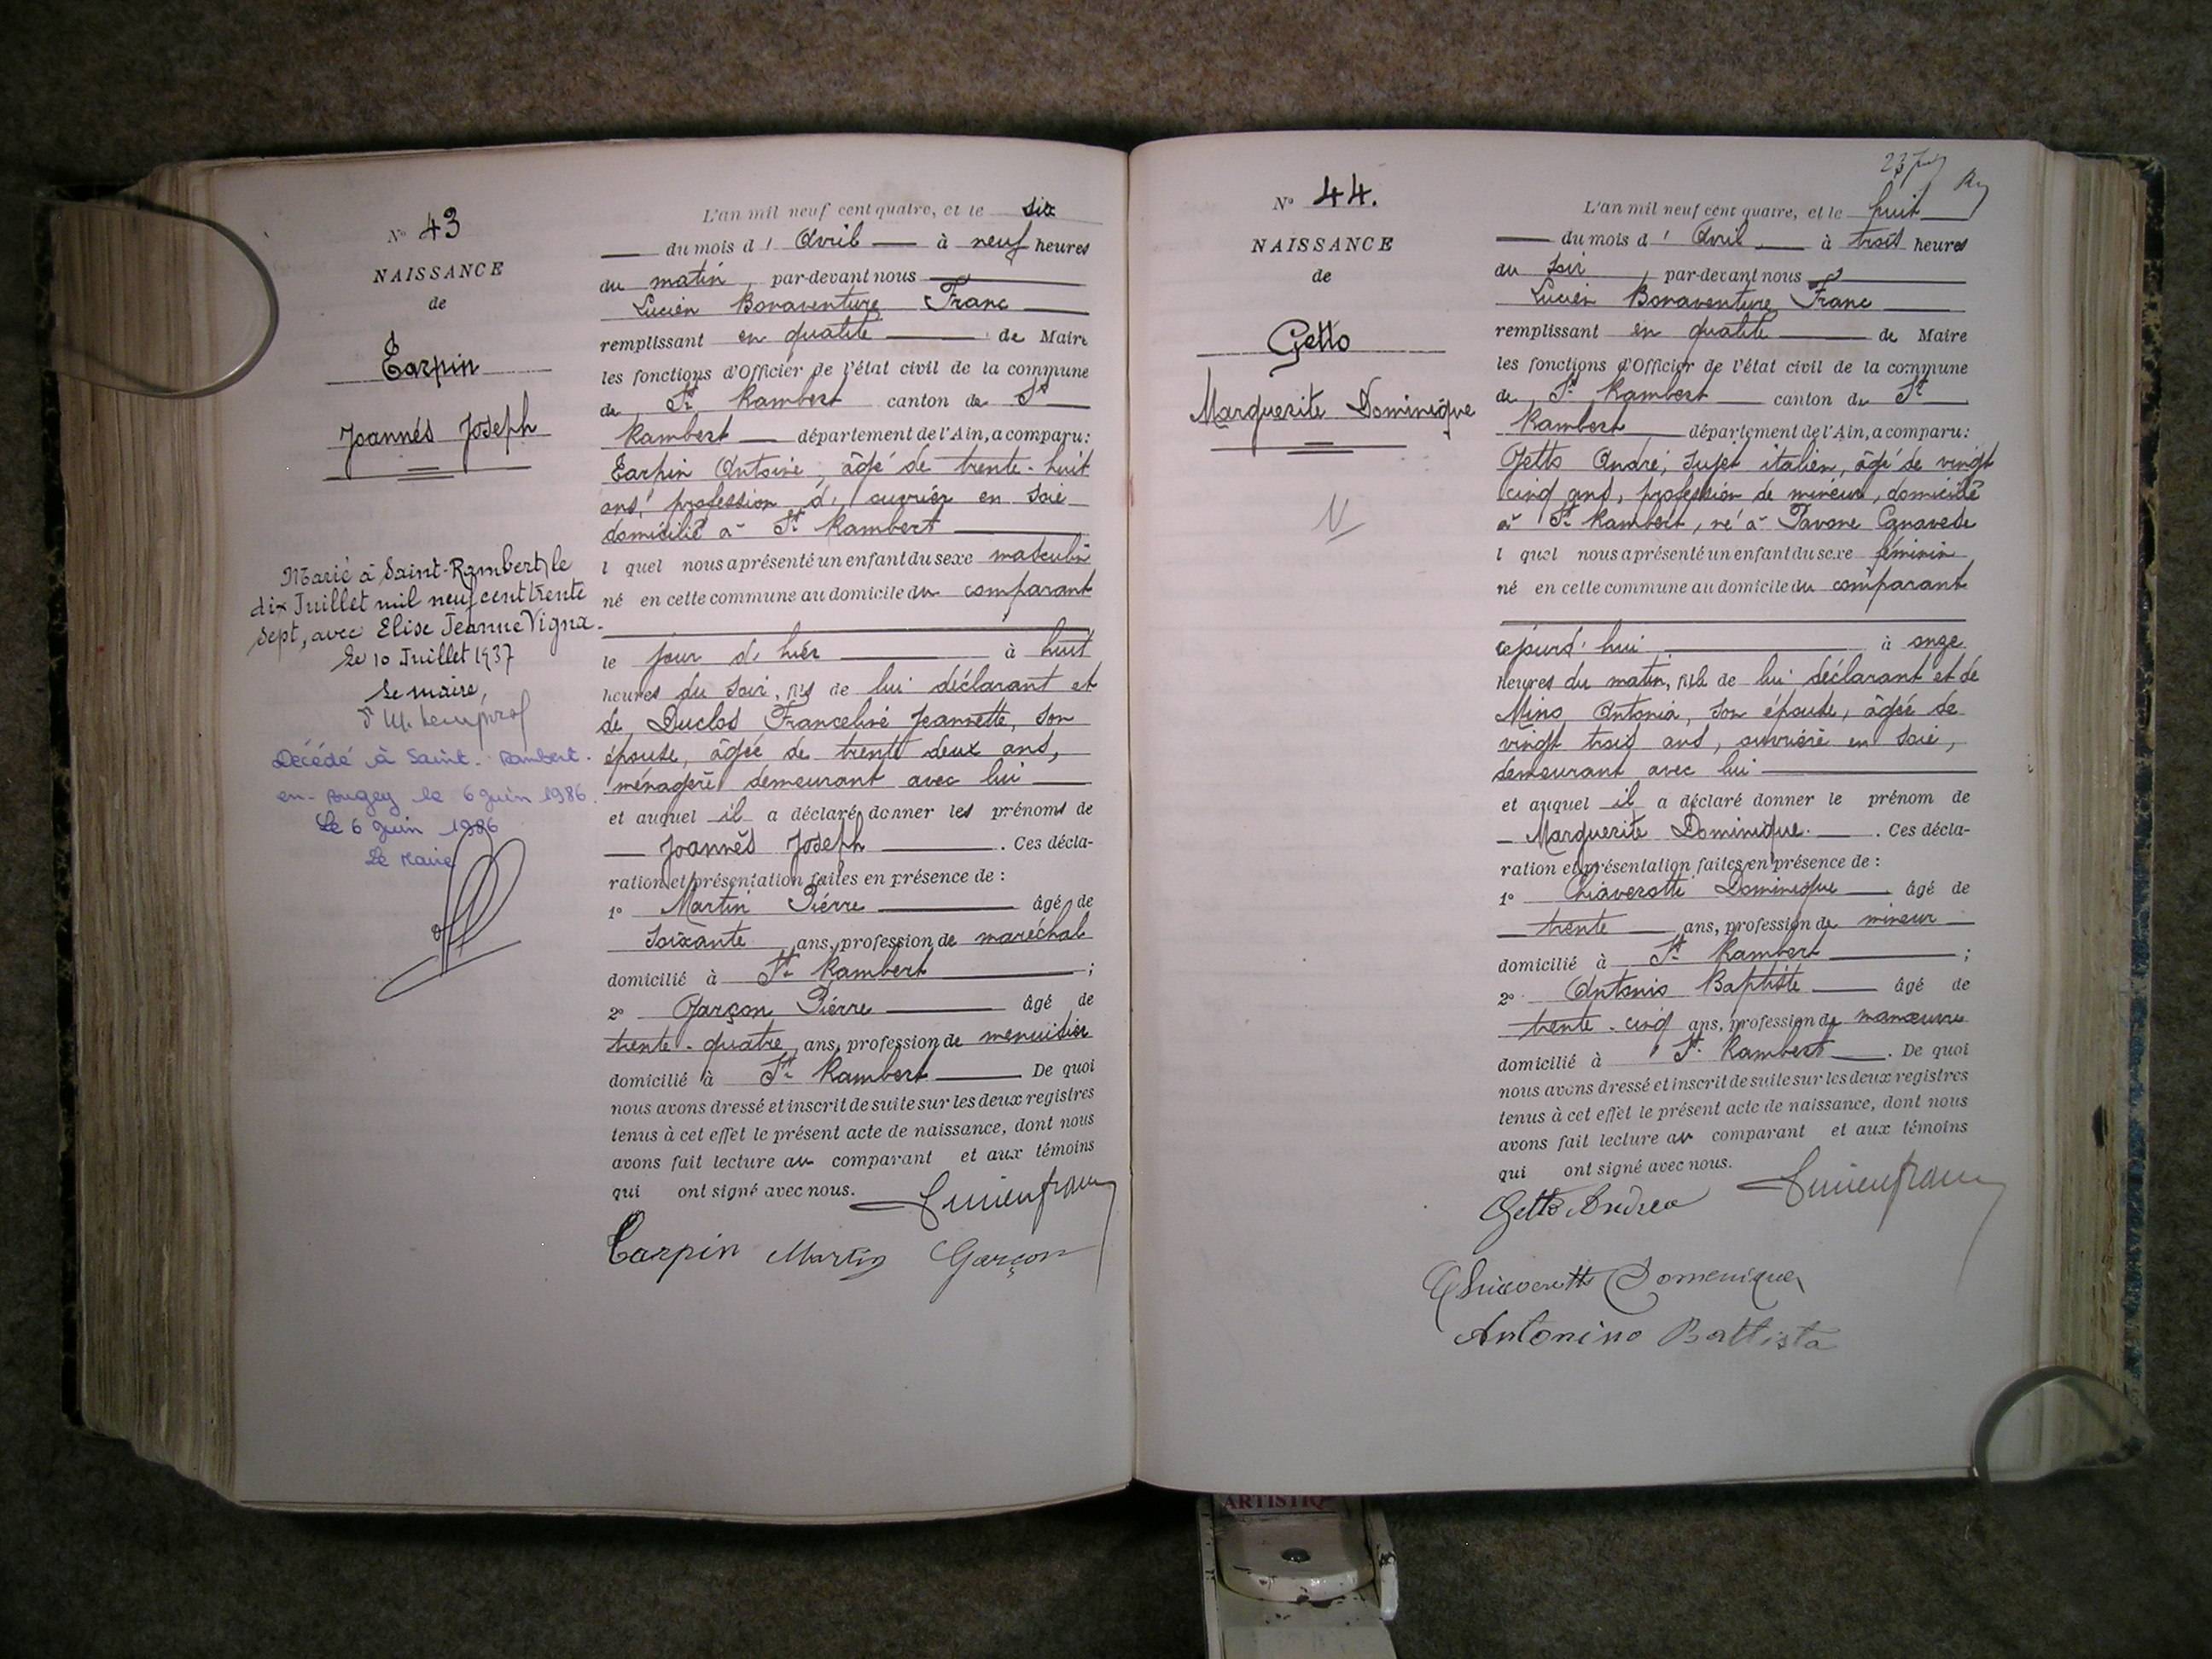 N° 43
NAISSANCE
de
Tarpin
Joannès Joseph
Marié à Saint-Rambert, le
dix Juillet mil neuf cent trente
sept, avec Elise Jeanne Vigna.
Le 10 Juillet 1937
Le maire,
Décédé à Saint-Rambert-
en-Bugey le 6 Juin 1986.
Le 6 Juin 1986
Le Maire
L'an mil neuf cent quatre, et le six
du mois d' Avril à neuf heures
du matin, par-devant nous
Lucien Bonaventure Franc
remplissant en qualité de Maire
les fonctions d'Officier de l'état civil de la commune
de St Rambert canton de St
Rambert département de l'Ain, a comparu:
Tarpin Antoine, âgé de trente-huit
ans, profession d' ouvrier en soie
domicilié à St Rambert
l quel nous a présenté un enfant du sexe masculin
né en cette commune au domicile du comparant
le jour d'hier à huit
heures du soir, fils de lui déclarant et
de Duclos Franceline Jeannette, son
épouse, âgée de trente deux ans,
ménagère demeurant avec lui
et auquel il a déclaré donner les prénoms de
Joannès Joseph. Ces décla-
ration et présentation faites en présence de :
1° Martin Pierre âgé de
soixante ans, profession de maréchal
domicilié à St Rambert ;
2° Garçon Pierre âgé de
trente-quatre ans, profession de menuisier
domicilié à St Rambert De quoi
nous avons dressé et inscrit de suite sur les deux registres
tenus à cet effet le présent acte de naissance, dont nous
avons fait lecture au comparant et aux témoins
qui ont signé avec nous. Lucien franc
Tarpin Martin Garçon
N° 44.
NAISSANCE
de
Getto
Marguerite Dominique
V
23
L'an mil neuf cent quatre, et le huit
du mois d' Avril à trois heures
du soir, par-devant nous
Lucien Bonaventure Franc
remplissant en qualité de Maire
les fonctions d'Officier de l'état civil de la commune
de St Rambert canton de St
Rambert département de l'Ain, a comparu:
Getto André, sujet italien, âgé de vingt
cinq ans, profession de mineur, domicilié
à St Rambert, né à Pavone Canavese
l quel nous a présenté un enfant du sexe féminin
né en cette commune au domicile du comparant
cejourd'hui à onze
heures du matin, fille de lui déclarant et de
Mino Antonia, son épouse, âgée de
vingt trois ans, ouvrière en soie,
demeurant avec lui
et auquel il a déclaré donner le prénom de
Marguerite Dominique. Ces décla-
ration et présentation faites en présence de :
1° Chiaverotti Dominique âgé de
trente ans, profession de mineur
domicilié à St Rambert ;
2° Antonio Baptiste âgé de
trente-cinq ans, profession de manœuvre
domicilié à St Rambert. De quoi
nous avons dressé et inscrit de suite sur les deux registres
tenus à cet effet le présent acte de naissance, dont nous
avons fait lecture au comparant et aux témoins
qui ont signé avec nous. Lucien franc
Getto Andrea
Domenique
Antonino Battista
ARTISTIQ